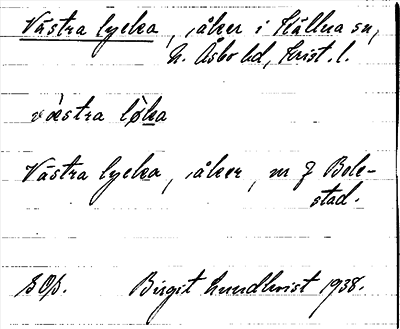 Västra lycka, åker i Källna sn,
N. Åsbo hd, Krist. l.
væ̀stra løka
Västra lycka, åker, nr 7 Bole-
stad.
Birgit Lundkvist 1938.